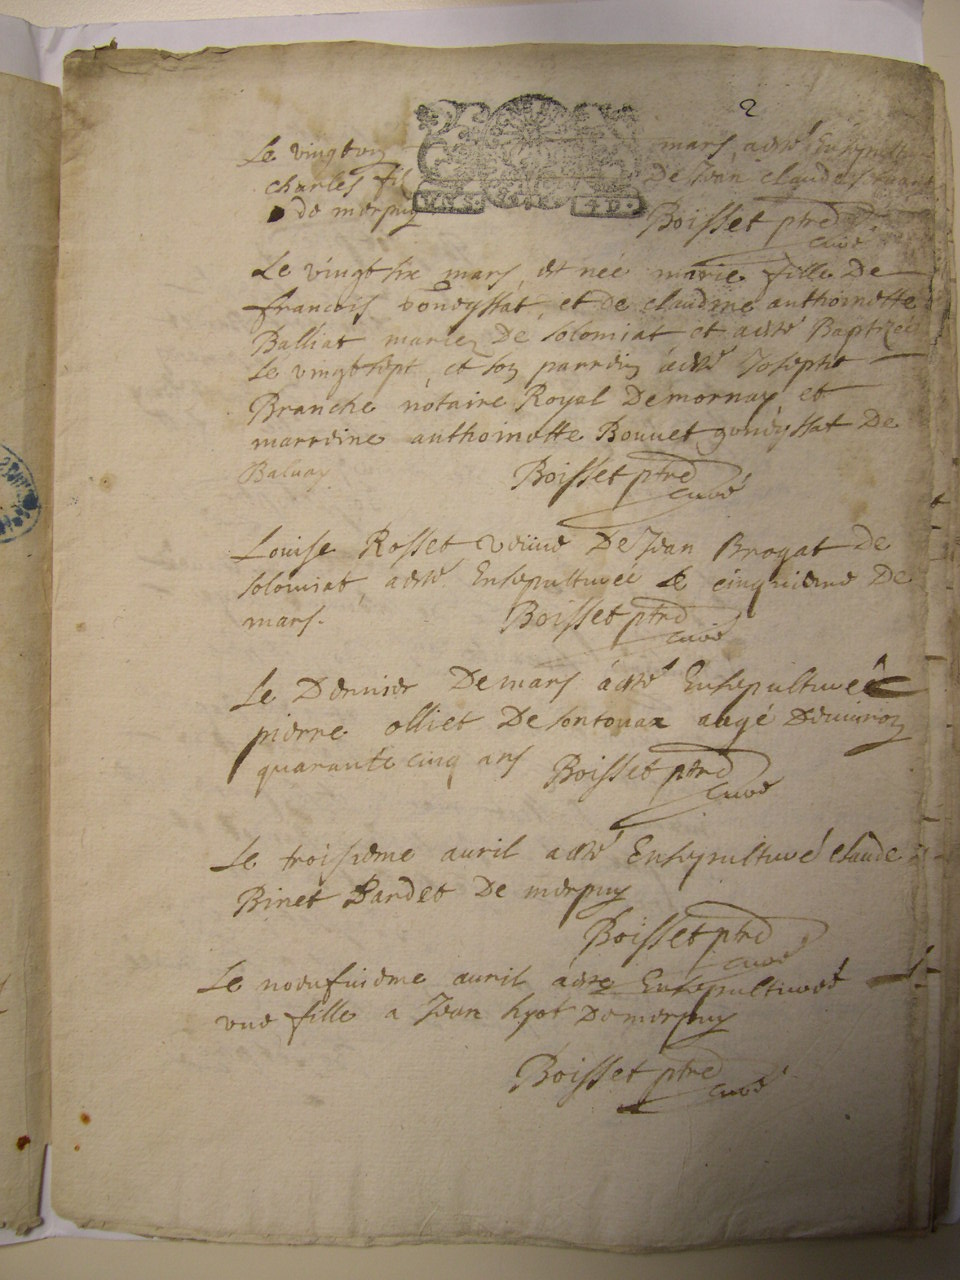 2
Le vingt mars, a esté Ensepult
charles fil De Jean claude
de merpuy Boisset ptre
curé
Le vingt six mars est née marie fille de
francois gondyssat, et de claudine anthoinette
Balliat mariez De solomiat et a esté Baptizée
Le vingt sept, et son parrein a esté Joseph
Branche notaire Royal Demornay et
marreine anthoinette Bouvet gondyssat De
Balvay Boisset ptre
curé
Louise Rosset veuve De Jean Brogat de
solomiat, a esté Ensepulturée le cinquieme De
mars. Boisset ptre
curé
Le Dernier De mars a esté Ensepulturé
pierre olliet De sontonax augé Denviron
quarante cinq ans Boisset ptre
curé
Le troisieme avril a esté Ensepulturé claude
Binet Dardet De merpuy
Boisset ptre
curé
Le noeufuieme avril a esté Ensepulturée
une fille a Jean hyot De merpuy
Boisset ptre
curé